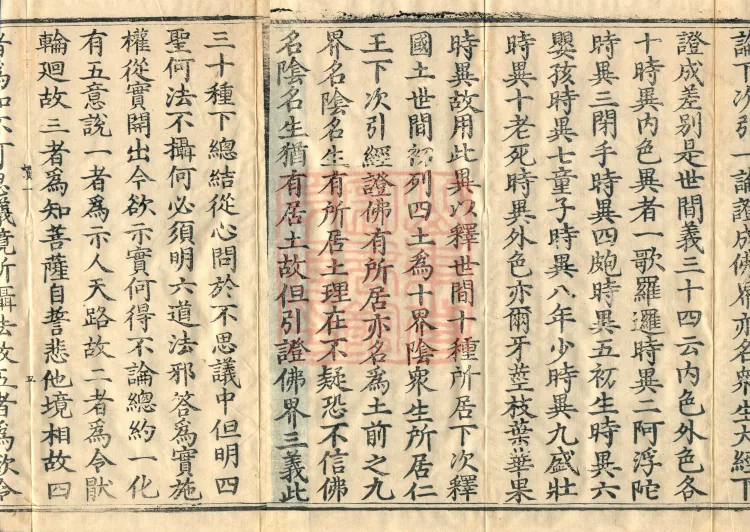 論下次引一論證成佛界亦名衆生大經下
證成差别是世間義三十四云内色外色各
十時異内色異者一歌羅邏時異二阿浮陀
時異三閉手時異四皰時異五初生時異六
嬰孩時異七童子時異八年少時異九盛壯
時異十老死時異外色亦爾牙莖枝葉華果
時異故用此異以釋世間十種所居下次釋
國土世間初列四土爲十界陰衆生所居仁
王下次引經證佛有所居亦名爲土前之九
界名陰名生有所居土理在不疑恐不信佛
名陰名生猶有居土故但引證佛界三義此
三十種下總結從心問於不思議中但明四
聖何法不攝何必須明六道法邪答爲實施
權從實開出今欲示實何得不論總約一化
有五意說一者爲示人天路故二者爲令猒
輪廻故三者爲知菩薩自誓悲他境相故四
者爲知不可思議境所攝法故五者爲欲令